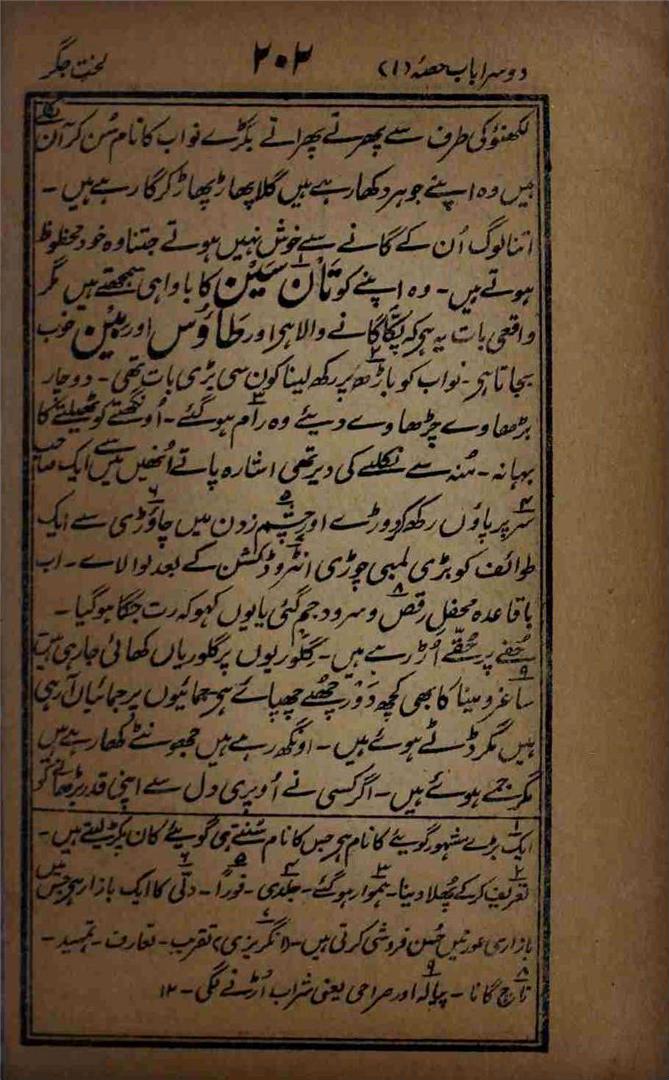 دوسرا باب حصہ (۱) ۲۰۲ لختِ جگر
لکھنؤ کی طرف سے پھرتے پھراتے بگڑے نواب کا نام سُن کر آن
ہیں وہ اپنے جوہر دکھا رہے ہیں گلا پھاڑ پھاڑ کر گا رہے ہیں۔
اتنا لوگ اُن کے گانے سے خوش نہیں ہوتے جتنا وہ خود محظوظ
ہوتے ہیں۔ وہ اپنے کو تان سین کا باوا ہی سمجھتے ہیں مگر
واقعی بات یہ ہی کہ پکّا گانے والا ہی اور طاؤس اور بین خوب
بجاتا ہی۔ نواب کو باڑھ پر رکھ لینا کون سی بڑی بات تھی۔ دو چار
بڑھاوے چڑھاوے دیئے وہ رام ہو گئے۔ اونگھتے کو ٹھیلتے کا
بہانہ۔ مُنہ سے نکلنے کی دیر تھی اشارہ پاتے اُنھیں میں سے ایک صاحب
سر پر پاؤں رکھ کر دوڑے اور چشم زدن میں چاؤڑی سے ایک
طوائف کو بڑی لمبی چوڑی انٹروڈکشن کے بعد لوالائے۔ اب
باقاعدہ محفلِ رقص و سرود جم گئی یا یوں کہو کہ رت جگا ہو گیا۔
حُقّے پر حُقّے اُڑ رہے ہیں۔ گلوریوں پر گلوریاں کھائی جا رہی ہیں
ساغر و مینا کا بھی کچھ دَور چُھپے چھپائے ہی جمائیوں پر جمائیاں آ رہی
ہیں مگر ڈٹے ہوئے ہیں۔ اونگھ رہے ہیں جھونٹے کھا رہے ہیں
مگر جمے ہوئے ہیں۔ اگر کسی نے اُوپری دل سے اپنی قدر بڑھانے کو
۱ ایک بڑے مشہور گویّے کا نام ہی جس کا نام سُنتے ہی گویّے کان پکڑ لیتے ہیں۔
۲ تعریف کر کے پُھلا دینا۔ ۳ ہموار ہو گئے۔ ۴ جلدی۔ ۵ فوراً۔ ۶ دلّی کا ایک بازار ہی جس میں
بازاری عورتیں حُسن فروشی کرتی ہیں۔ ۷ (انگریزی) تقریب۔ تعارف۔ تمہید۔
۸ ناچ گانا۔ ۹ پیالہ اور صراحی یعنی شراب اُڑنے لگی۔ ۱۲